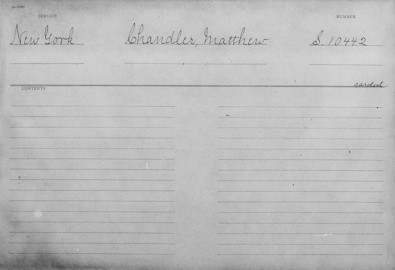 SERVICE NUMBER
New York Chandler, Matthew S. 10442
carded
CONTENTS